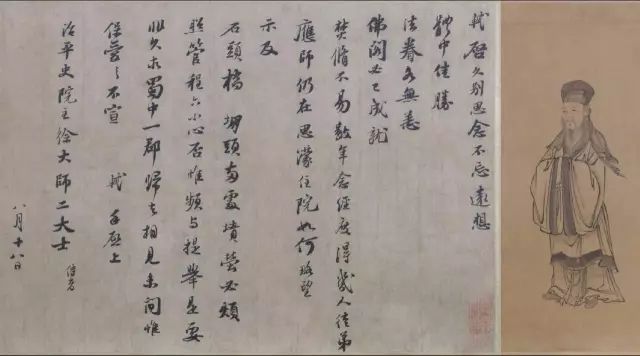 軾啓久别思念不忘遠想
體中佳勝
法眷各無恙
佛閣必已成就
焚脩不易數年念經度得幾人徒弟
應師仍在思濛住院如何略望
示及
石頭橋堋頭兩處墳塋必煩
照管程六小心否惟頻與提舉是要
非久求蜀中一郡歸去相見未間惟
保愛之不宣 軾手啓上
治平史院主徐大師二大士 侍者
八月十八日